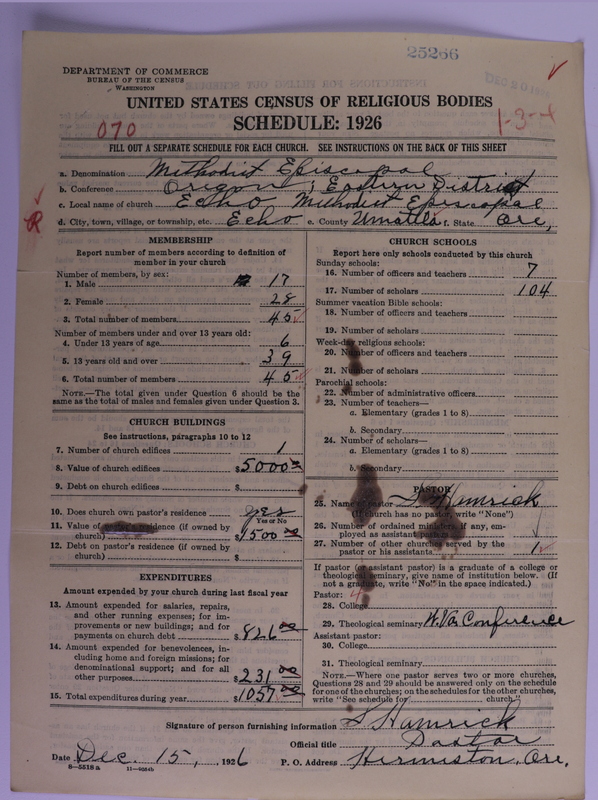 25266
DEPARTMENT OF COMMERCE
BUREAU OF THE CENSUS
WASHINGTON
UNITED STATES CENSUS OF RELIGIOUS BODIES
070
SCHEDULE: 1926
1-3-4
FILL OUT A SEPARATE SCHEDULE FOR EACH CHURCH. SEE INSTRUCTIONS ON THE BACK OF THIS SHEET
a. Denomination Methodist Episcopal
b. Conference Oregon; Eastern District
c. Local name of church Echo Methodist Episcopal
R
d. City, town, village, or township, etc. Echo e. County Umatilla f. State Ore,
MEMBERSHIP
Report number of members according to definition of
member in your church
Number of members, by sex:
1. Male 17
2. Female 28
3. Total number of members 45
Number of members under and over 13 years old:
4. Under 13 years of age 6
5. 13 years old and over 39
6. Total number of members 45
NOTE.—The total given under Question 6 should be the
same as the total of males and females given under Question 3.
CHURCH BUILDINGS
See instructions, paragraphs 10 to 12
7. Number of church edifices 1
8. Value of church edifices $5000 00
9. Debt on church edifices $
10. Does church own pastor's residence yes
Yes or No
11. Value of residence (if owned by
church) $1500 00
12. Debt on pastor's residence (if owned by
church) $
EXPENDITURES
Amount expended by your church during last fiscal year
13. Amount expended for salaries, repairs,
and other running expenses; for im-
provements or new buildings; and for
payments on church debt $826 00
14. Amount expended for benevolences, in-
cluding home and foreign missions; for
denominational support; and for all
other purposes $231 00
15. Total expenditures during year $1057 00
CHURCH SCHOOLS
Report here only schools conducted by this church
Sunday schools:
16. Number of officers and teachers 7
17. Number of scholars 104
Summer vacation Bible schools:
18. Number of officers and teachers
19. Number of scholars
Week-day religious schools:
20. Number of officers and teachers
21. Number of scholars
Parochial schools:
22. Number of administrative officers
23. Number of teachers—
a. Elementary (grades 1 to 8)
b. Secondary
24. Number of scholars—
a. Elementary (grades 1 to 8)
b. Secondary
PASTOR
25. Name of pastor S. Hamrick
(If church has no pastor, write "None")
26. Number of ordained ministers, if any, em-
ployed as assistant pastors
27. Number of other churches served by the
pastor or his assistants 1
If pastor (or assistant pastor) is a graduate of a college or
theological seminary, give name of institution below. (If
not a graduate, write "No" in the space indicated.)
Pastor: 4
28. College
29. Theological seminary W. Va Conference
Assistant pastor:
30. College
31. Theological seminary
NOTE.—Where one pastor serves two or more churches,
Questions 28 and 29 should be answered only on the schedule
for one of the churches; on the schedules for the other churches,
write "See schedule for church"
Signature of person furnishing information S Hamrick
Official title Pastor
Date Dec. 15, 1926 P. O. Address Hermiston, Ore.
8—5518 a 11—9084b